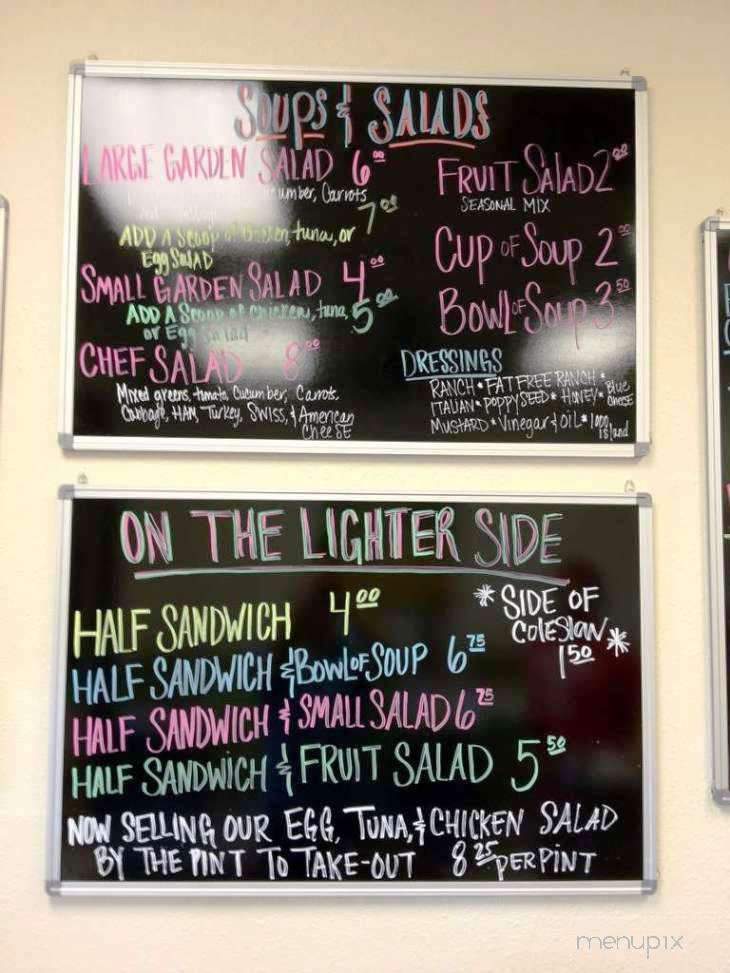 SOUPS & SALADS
LARGE GARDEN SALAD 6.00
cumber, Carrots
ADD A Scoop of chicken, tuna, or 7.00
Egg SALAD
SMALL GARDEN SALAD 4.00
ADD A Scoop of chicken, tuna, 5.00
or Egg Salad
CHEF SALAD 8.00
Mixed greens, tomato, Cucumber, Carrots,
Cabbage, HAM, Turkey, SWISS, & American
Cheese
FRUIT SALAD 2.00
SEASONAL MIX
CUP OF SOUP 2.00
BOWL OF SOUP 3.50
DRESSINGS
RANCH * FAT FREE RANCH * Blue Cheese
ITALIAN * POPPYSEED * HONEY
MUSTARD * Vinegar & OIL * 1000 island
ON THE LIGHTER SIDE
HALF SANDWICH 4.00
HALF SANDWICH & BOWL OF SOUP 6.75
HALF SANDWICH & SMALL SALAD 6.75
HALF SANDWICH & FRUIT SALAD 5.50
* SIDE OF
COLESLAW *
1.50
NOW SELLING OUR EGG, TUNA, & CHICKEN SALAD
BY THE PINT TO TAKE-OUT 8.25 PER PINT
menupix